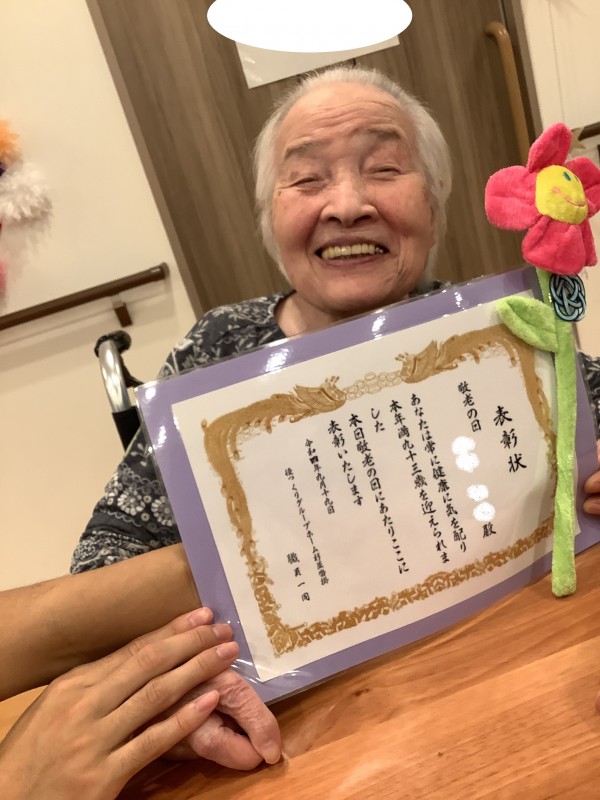 表彰状
敬老の日
殿
あなたは常に健康に気を配り
本年満九十三歳を迎えられま
した
本日敬老の日にあたりここに
表彰いたします
令和四年九月十九日
ほっくりグループホーム
職員一同